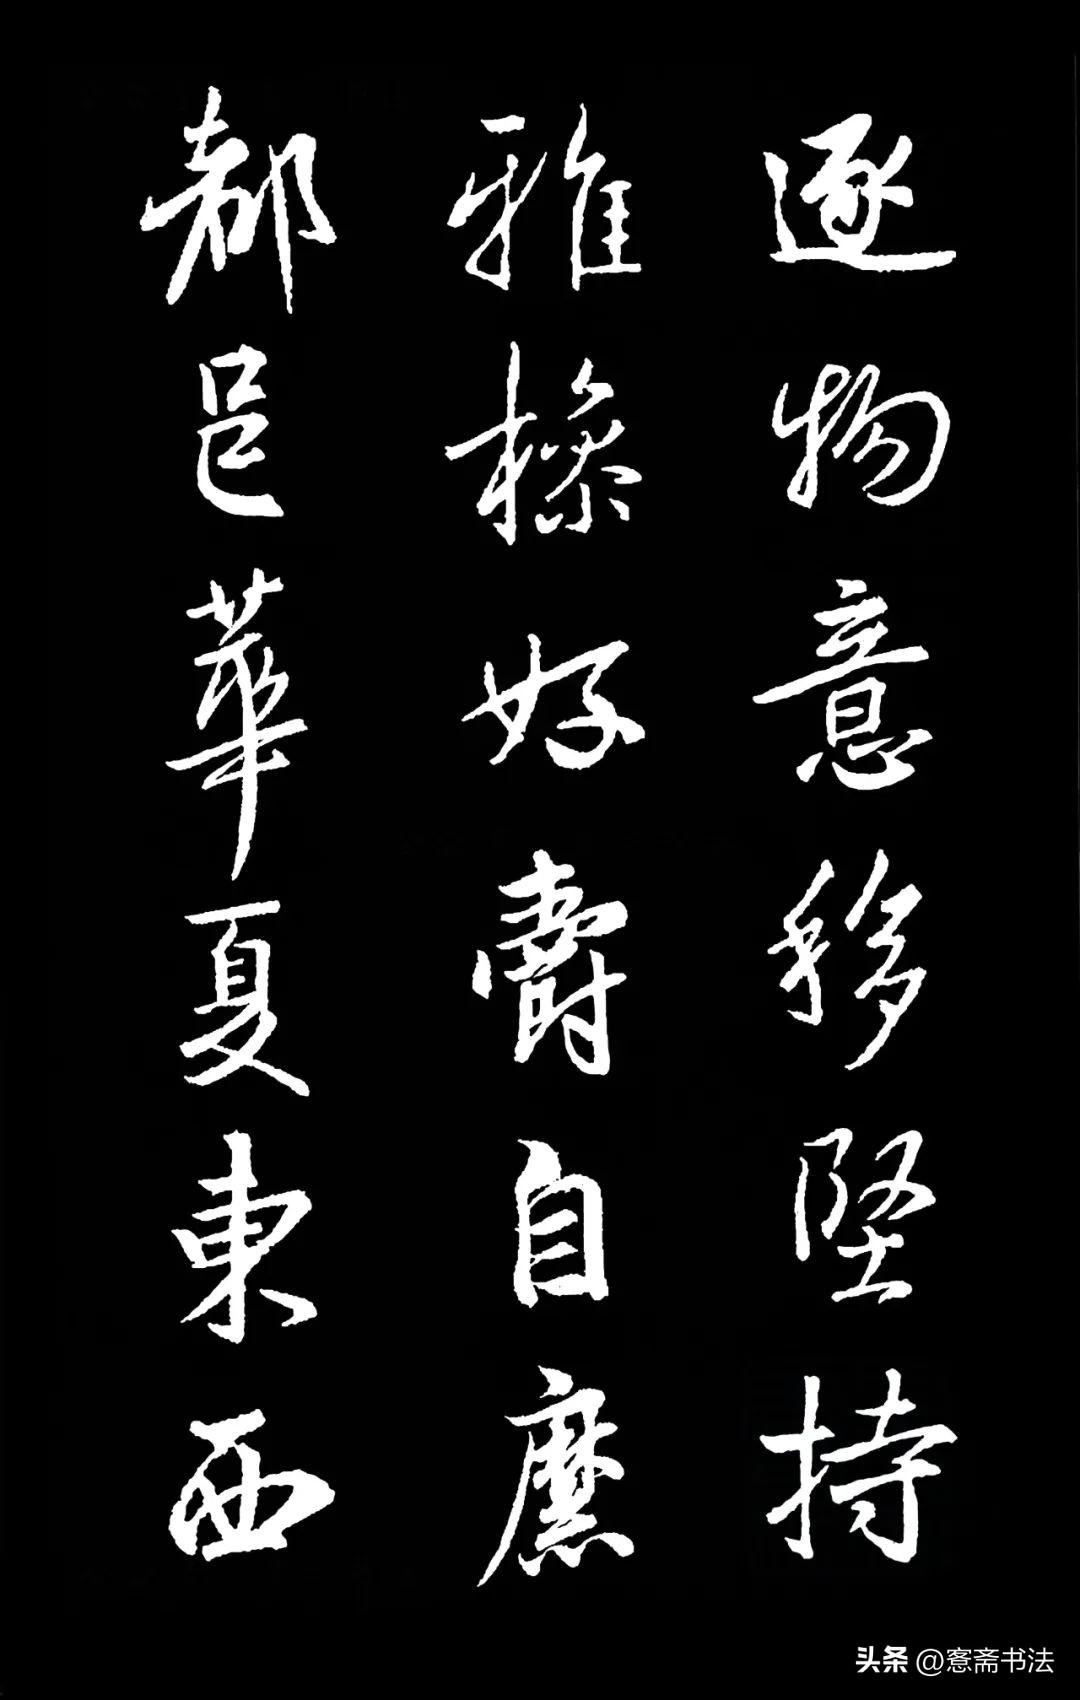 逐物意移堅持
雅操好爵自縻
都邑華夏東西
头条@愙斋书法